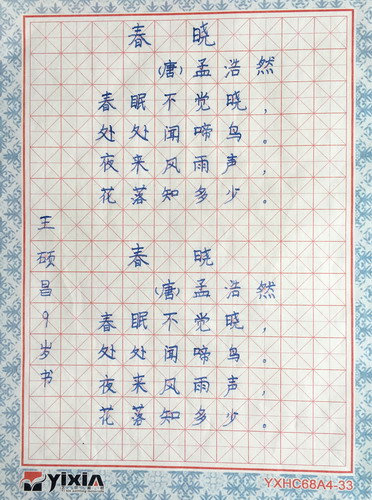 春晓
(唐)孟浩然
春眠不觉晓，
处处闻啼鸟。
夜来风雨声，
花落知多少。
春晓
(唐)孟浩然
春眠不觉晓，
处处闻啼鸟。
夜来风雨声，
花落知多少。
王硕昌9岁书
yixin
YXHC68A4-33